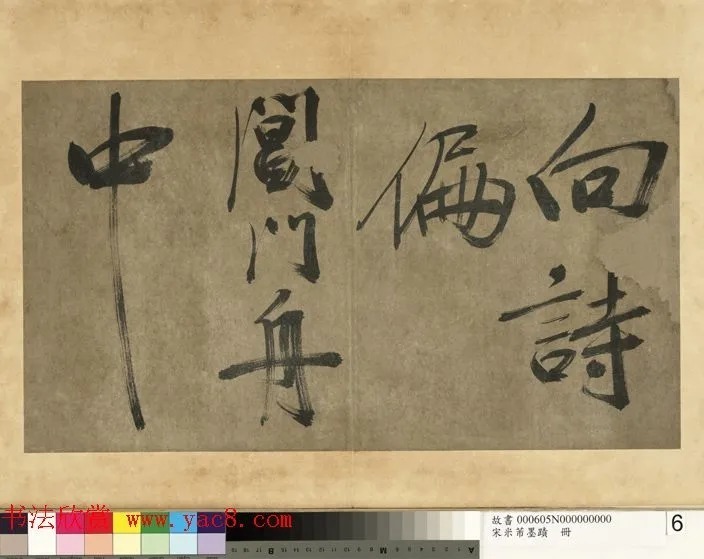 向詩
偏
閶門舟
中
书法欣赏 www.yac8.com
故書 000605N000000000
宋米芾墨蹟 冊
6